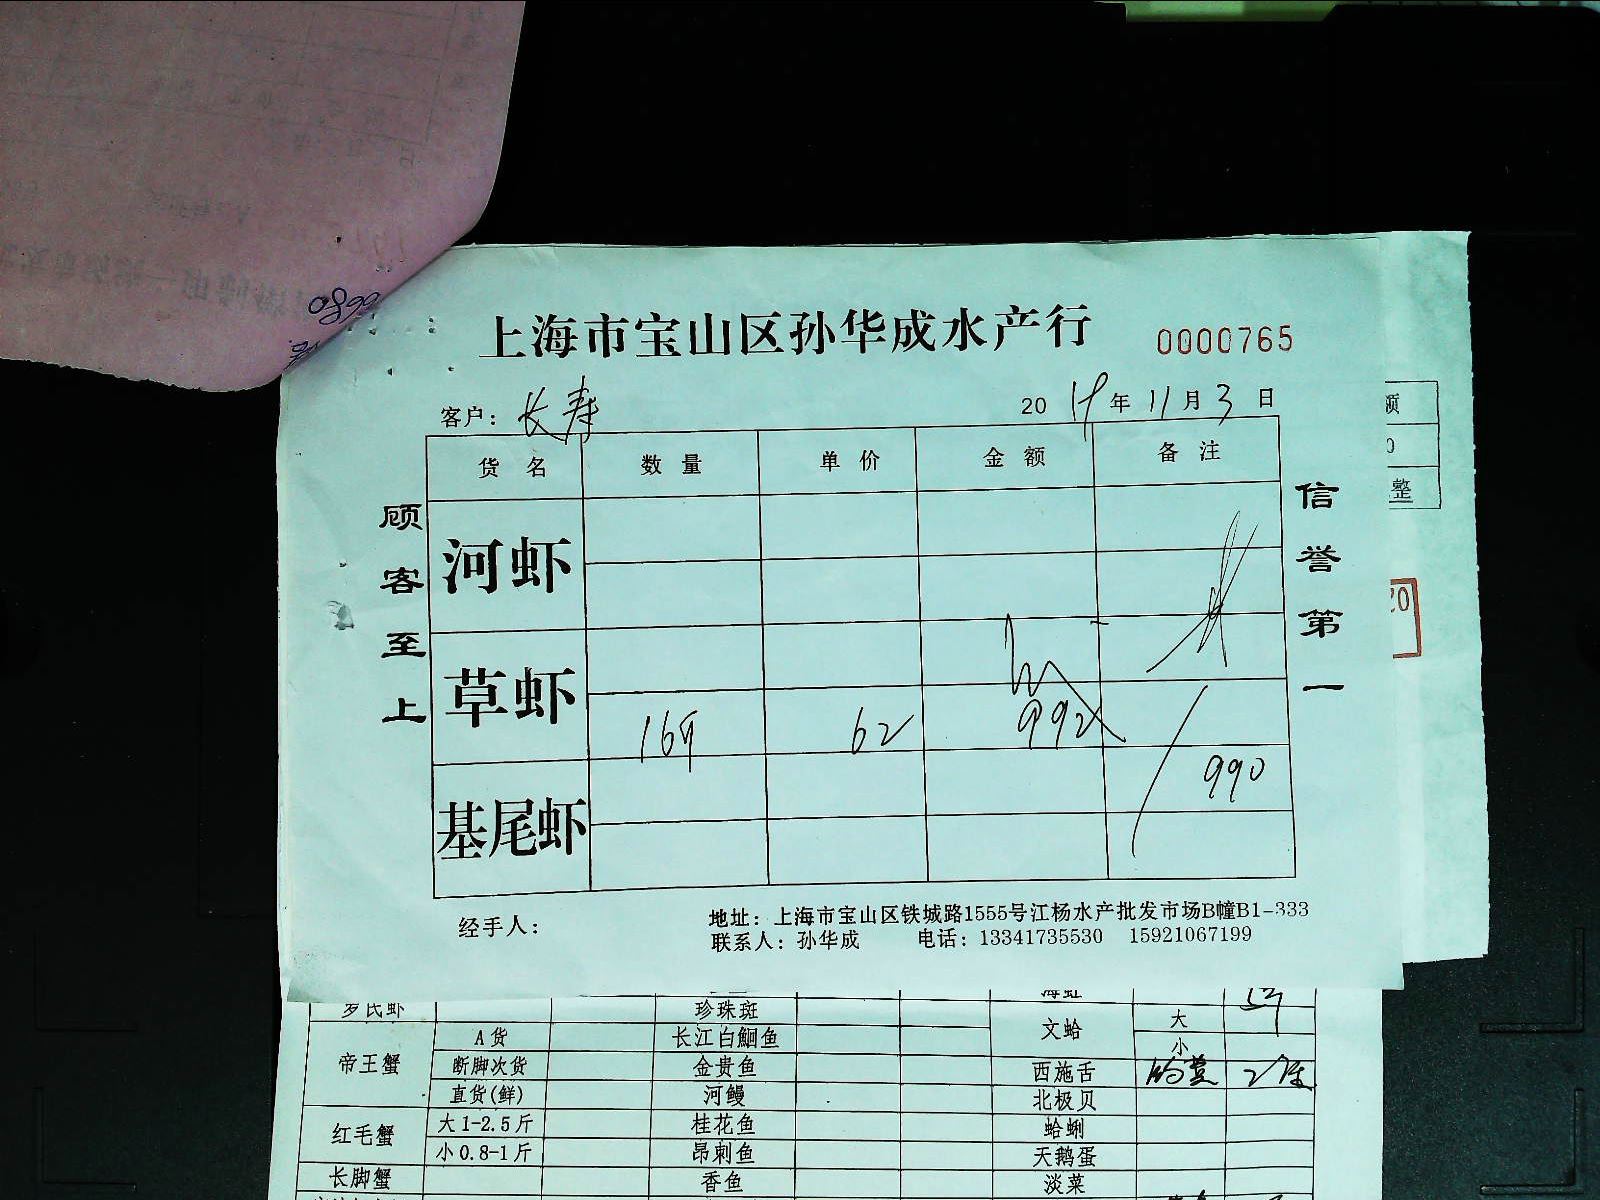 上海市宝山区孙华成水产行 0000765
客户: 长寿 20 19 年 11 月 3 日
货名 数量 单价 金额 备注
顾客至上
信誉第一
河虾
草虾
16斤 62 992
990
基尾虾
经手人:
地址: 上海市宝山区铁城路1555号江杨水产批发市场B幢B1-333
联系人: 孙华成 电话: 13341735530 15921067199
额
0
整
0899
罗氏虾 珍珠斑 海虹
帝王蟹 A货 长江白鮰鱼 文蛤 大
小
断脚次货 金贵鱼 西施舌
直货(鲜) 河鳗 北极贝
红毛蟹 大1-2.5斤 桂花鱼 蛤蜊
小0.8-1斤 昂刺鱼 天鹅蛋
长脚蟹 香鱼 淡菜